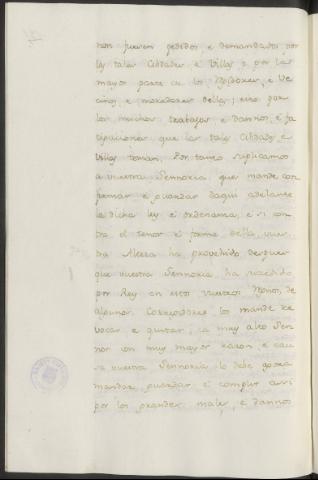 non fueren pedidos e demandados por
las tales Cibdades e Villas e por la
mayor parte de los Regidores, e Ve
cinos e moradores dellas; esto por
los muchos trabajos e dannos, e fa
tigaciones que las tales Cibdades e
Villas toman. Por tanto suplicamos
a vuestra Sennoria que mande con
firmar e guardar daqui adelante
la dicha ley e ordenanza, e si con
tra el tenor e forma della vues
tra Alteza ha provehido despues
que vuestra Sennoria ha sucedido
por Rey en estos vuestros Regnos, de
algunos Corregidores los mande re
vocar e quitar; ca muy alto Sen
nor con muy mayor razon, e cau
sa vuestra Sennoria lo debe agora
mandar guardar e complir assi
por los grandes males, e dannos